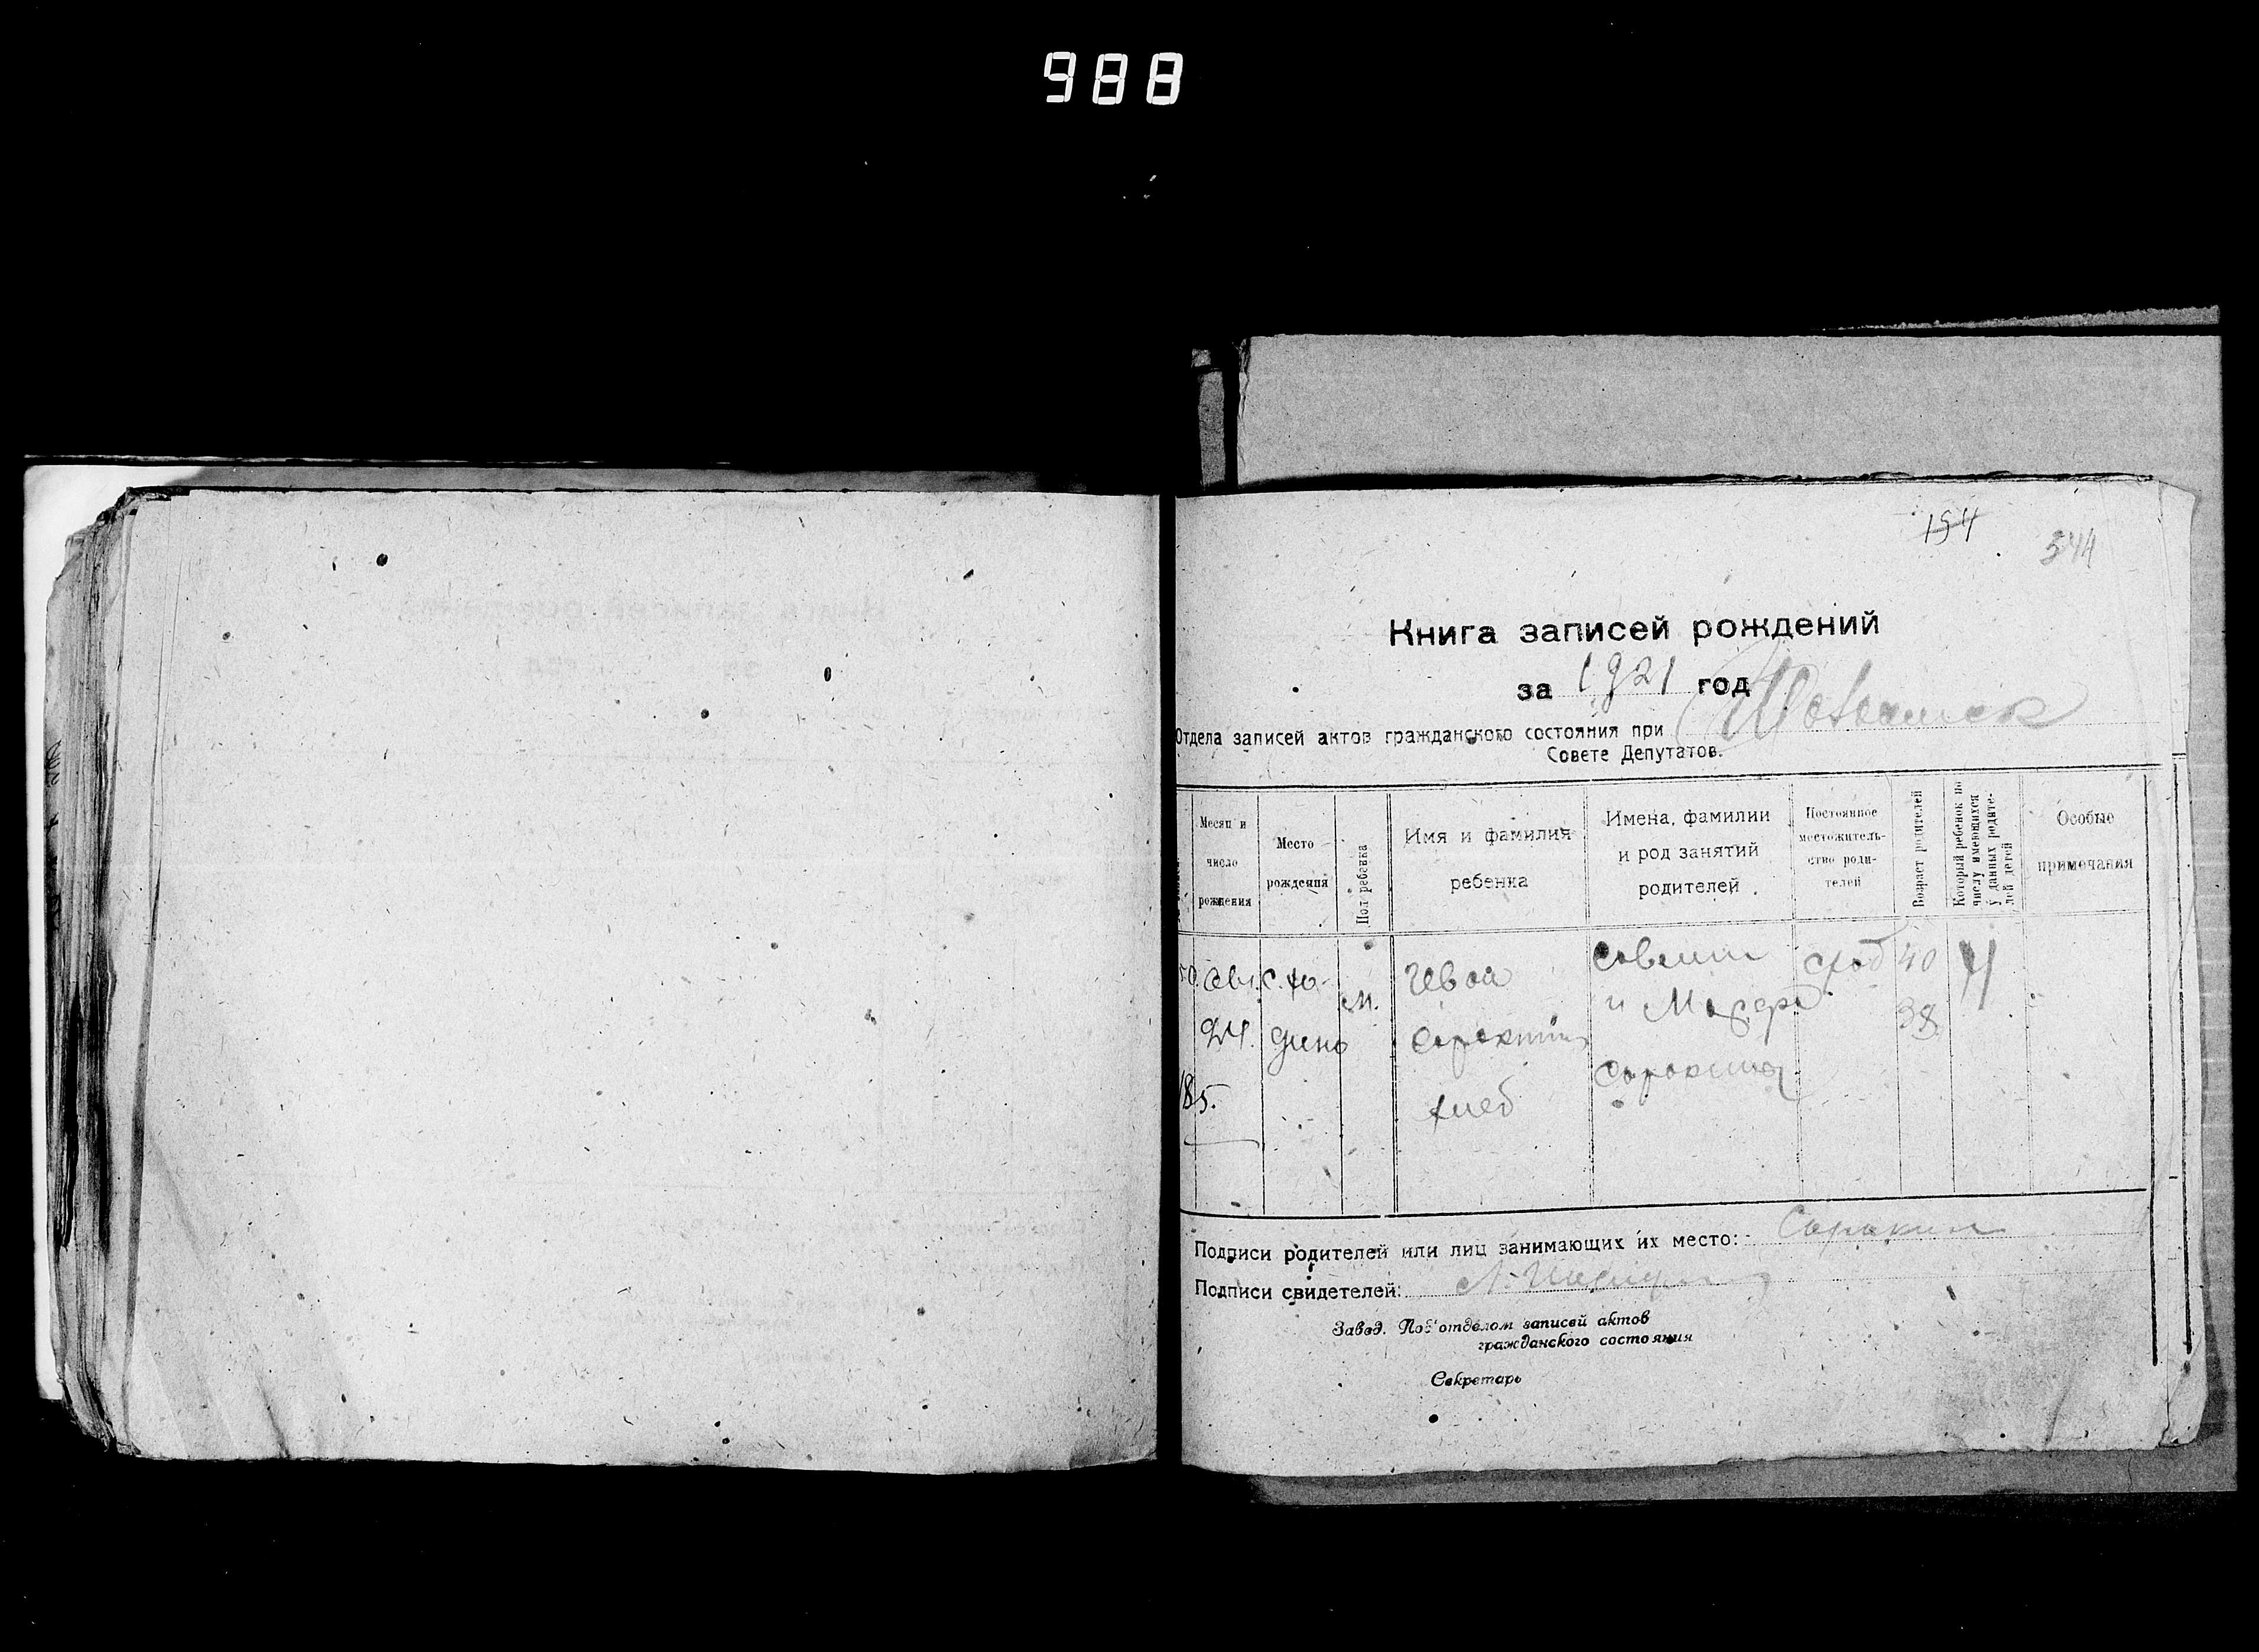 988
154
344
Книга записей рождений
за 1921 год
Отдела записей актов гражданского состояния при
Совете Депутатов.
Месяц и число рождения
Место рождения
Пол ребенка
Имя и фамилия ребенка
Имена, фамилии и род занятий родителей
Постоянное местожительство родителей
Возраст родителей
Который ребенок по числу имеющихся у данных родителей детей
Особые примечания
Авг.
24.
дино
185.
м.
Иван
Сорокин
хлеб
и
Сорокина
40
38
4
Подписи родителей или лиц занимающих их место: Сорокин
Подписи свидетелей:
Завед. Под'отделом записей актов
гражданского состояния
Секретарь